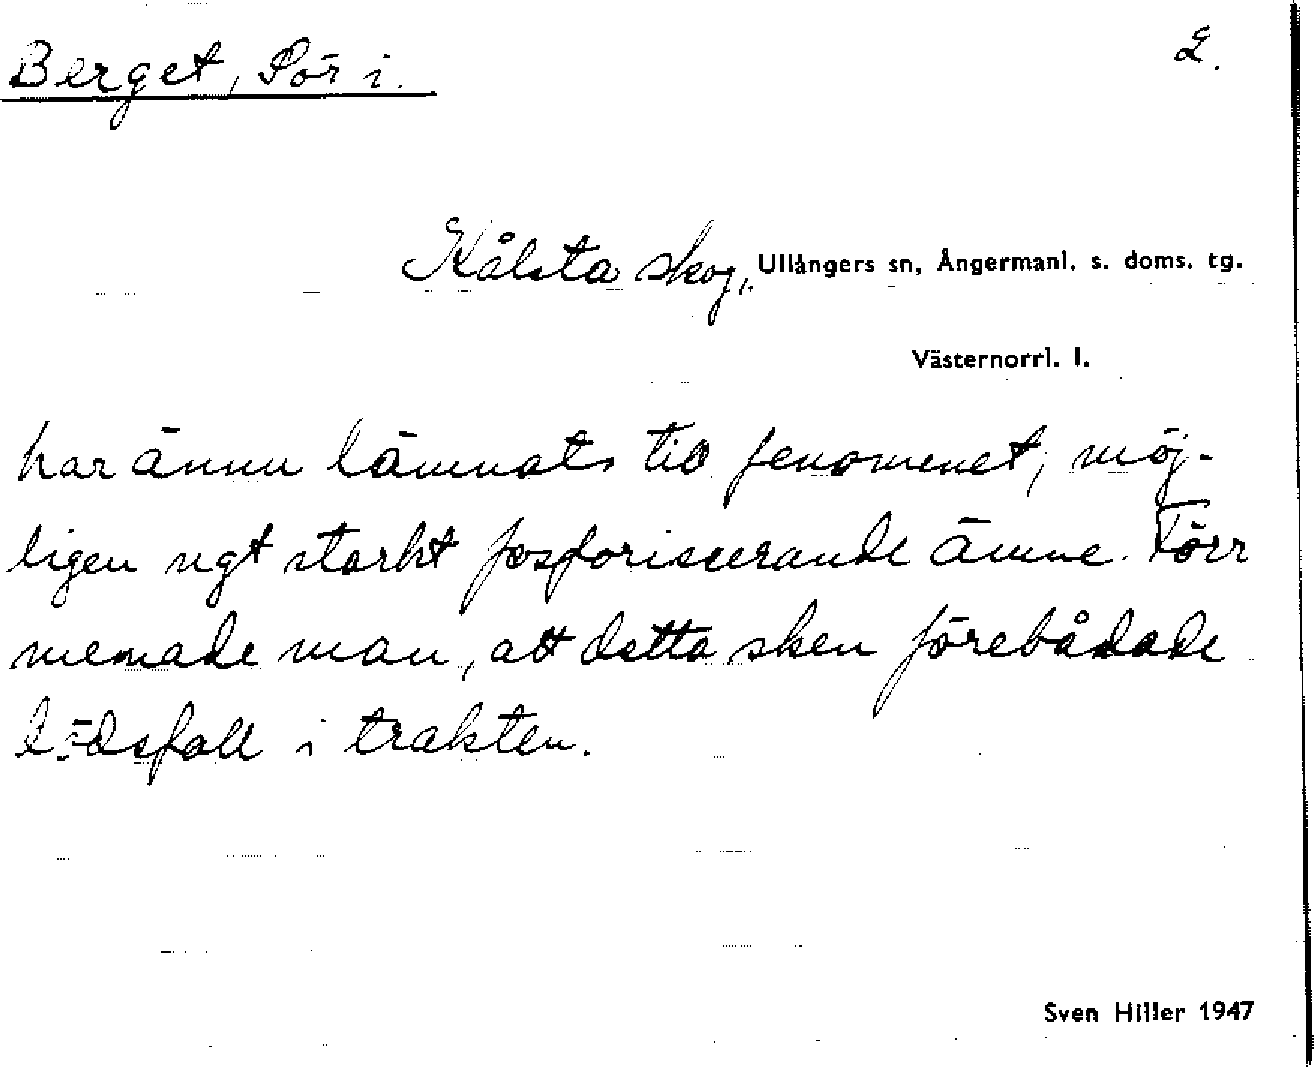 Berget, Pör i.
2.
Kålsta skog, Ullångers sn, Ångermanl. s. doms. tg.
Västernorrl. l.
har ännu lämnats till fenomenet, möj-
ligen ngt starkt fosforiscerande ämne. Förr
menade man, att detta sken förebådade
dödsfall i trakten.
Sven Hiller 1947